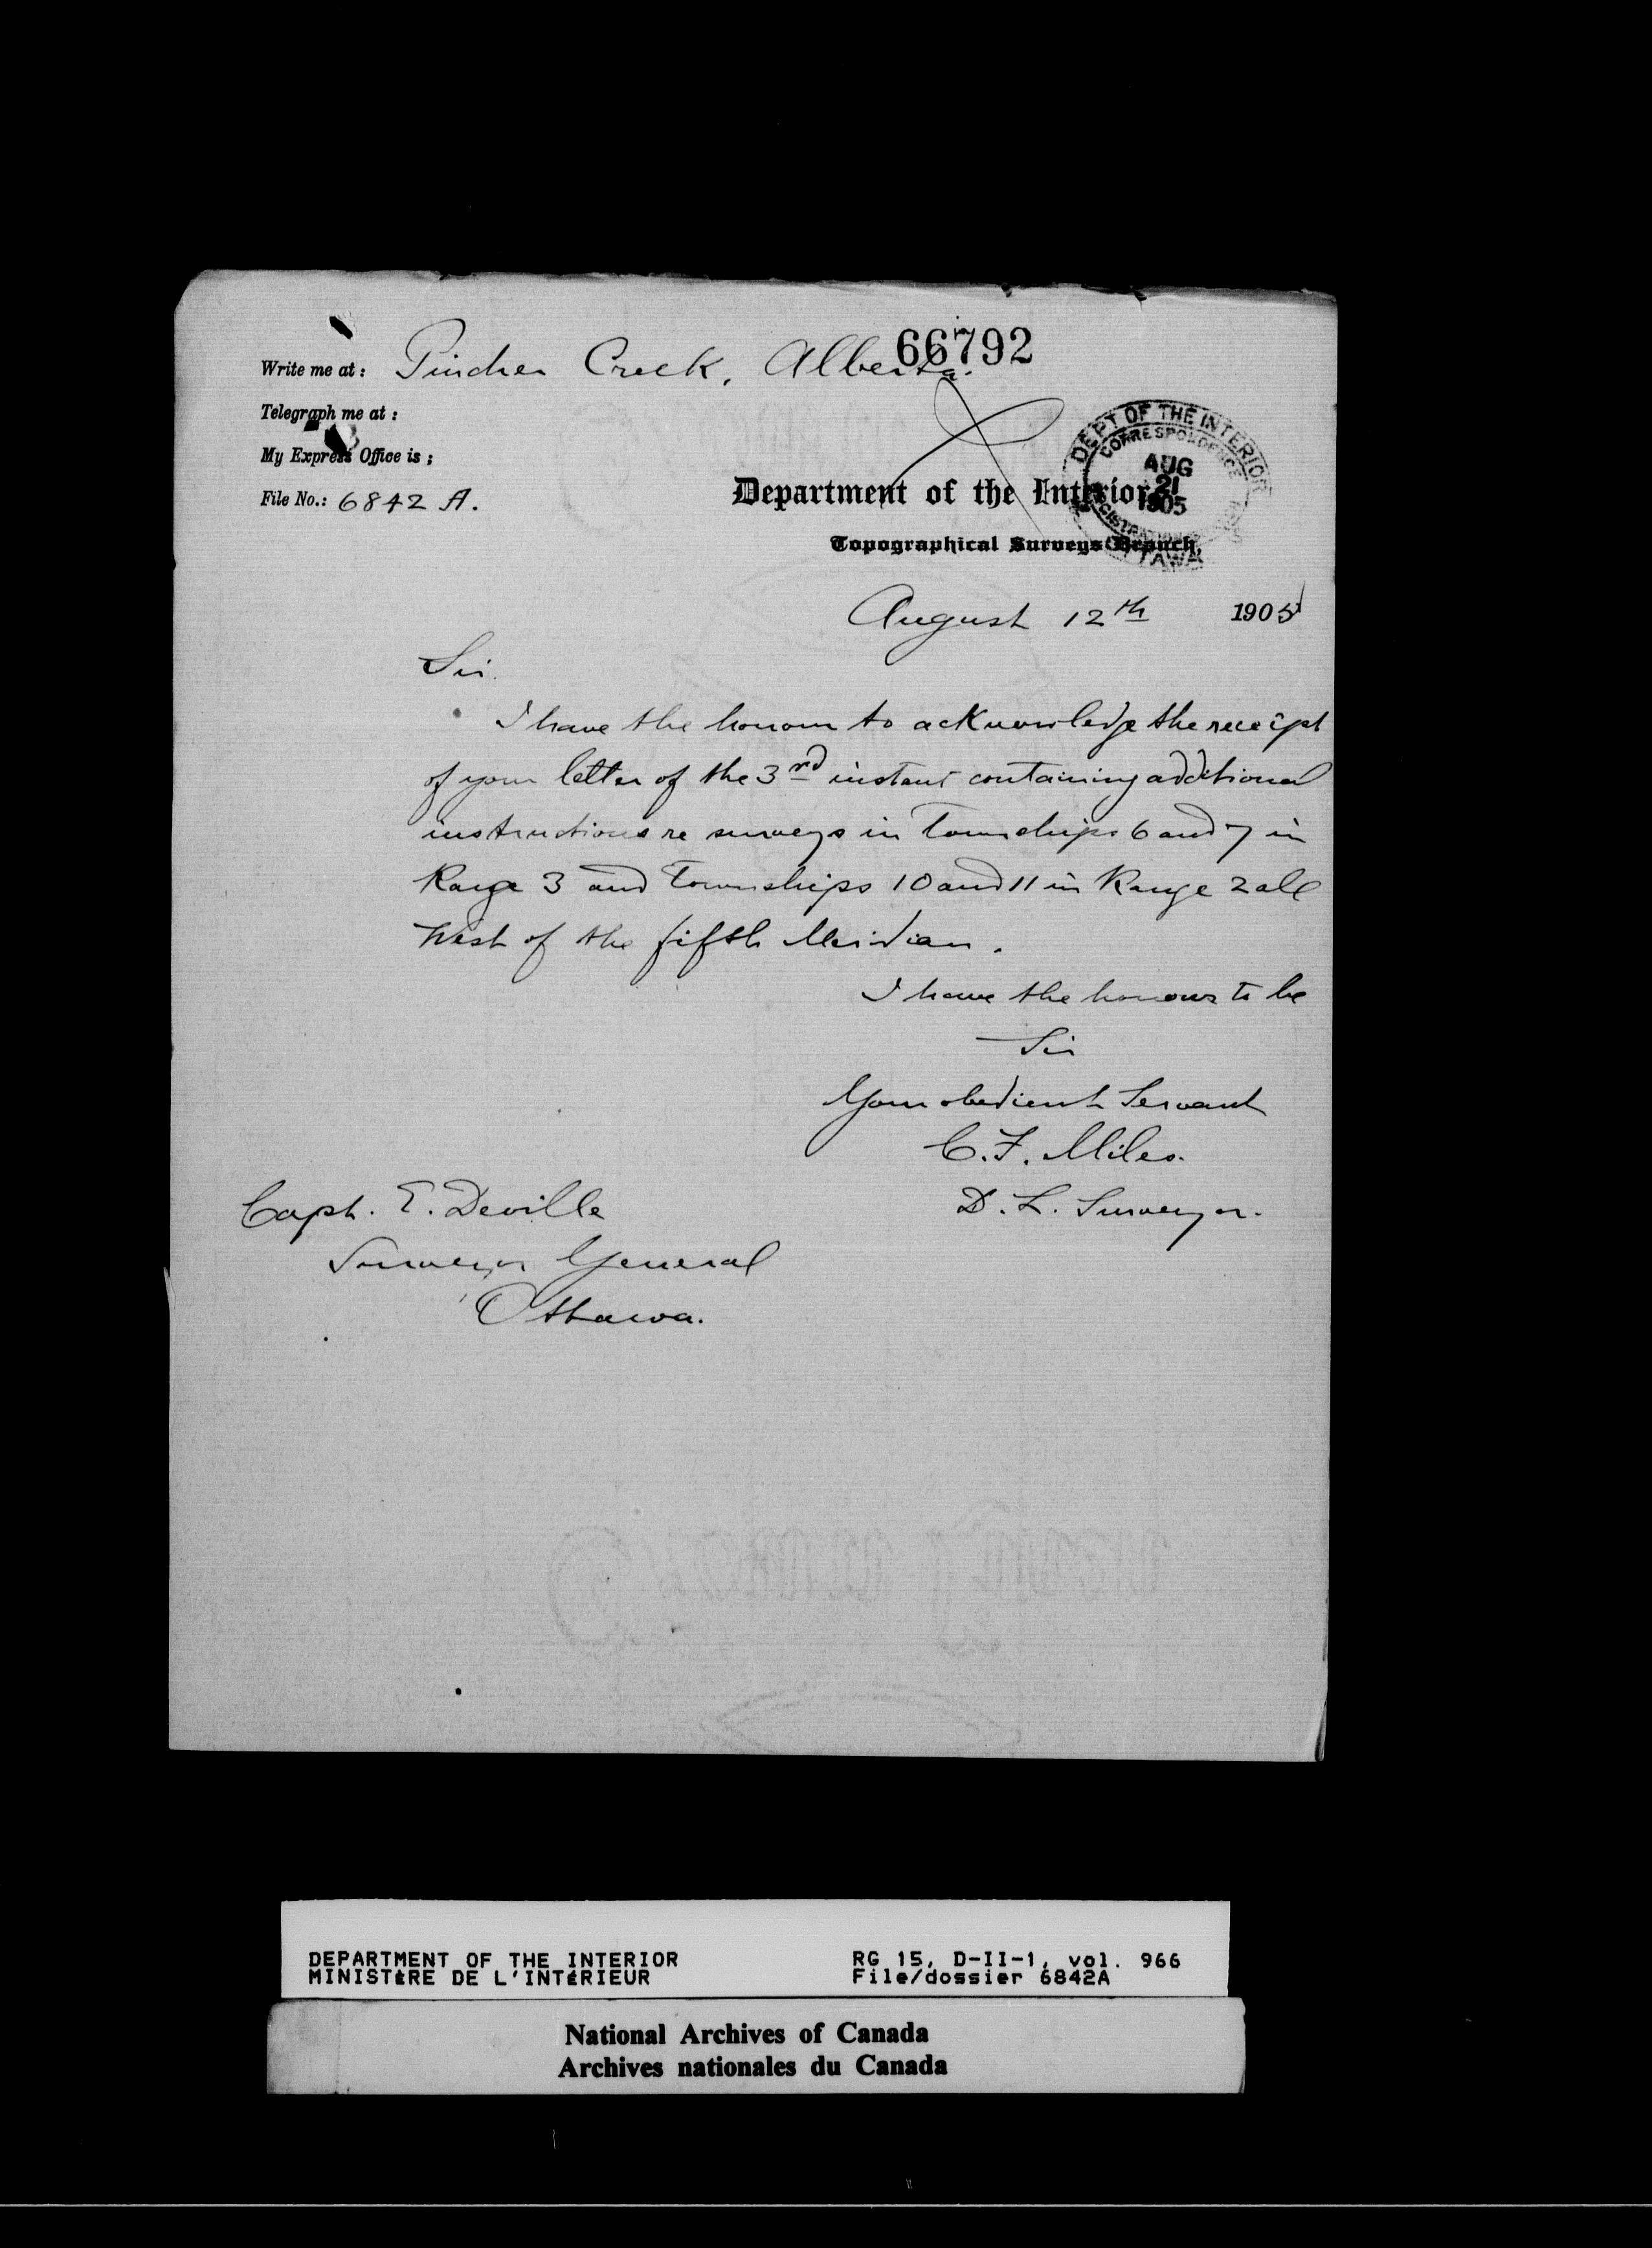 66792
Write me at: Pincher Creek, Alberta.
Telegraph me at:
My Express Office is;
File No.: 6842 A.
DEPT OF THE INTERIOR
CORRESPONDENCE
AUG
21
1905
Department of the Interior,
Topographical Surveys Branch,
August 12th 1905
Sir.
I have the honour to acknowledge the receipt
of your letter of the 3rd instant containing additional
instructions re surveys in Townships 6 and 7 in
Range 3 and Townships 10 and 11 in Range 2 all
West of the fifth Meridian.
I have the honour to be
Sir
Your obedient Servant
C. F. Miles.
D. L. Surveyor.
Capt. E. Deville
Surveyor General
Ottawa.
DEPARTMENT OF THE INTERIOR
MINISTÈRE DE L'INTÉRIEUR
RG 15, D-II-1, vol. 966
File/dossier 6842A
National Archives of Canada
Archives nationales du Canada